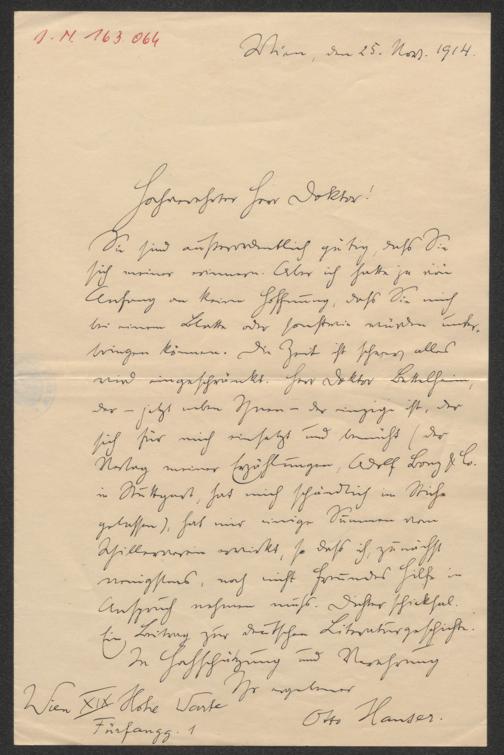 I. N. 163 064
Wien, den 25. Nov. 1914.
Hochverehrter Herr Doktor!
Sie sind außerordentlich gütig, daß Sie
sich meiner erinnern. Aber ich hatte ja von
Anfang an keine Hoffnung, daß Sie mich
bei einem Blatte oder sonstwie würden unter-
bringen können. Die Zeit ist schwer, alles
wird eingeschränkt. Herr Doktor Bettelheim,
der – jetzt neben Ihnen – der einzige ist, der
sich für mich einsetzt und bemüht (der
Verlag meiner Erzählungen, Adolf Bonz & Co.
in Stuttgart, hat mich schändlich im Stiche
gelassen), hat mir einige Summen vom
Schillerverein erwirkt, so daß ich, zunächst
wenigstens, noch nicht Freundes Hilfe in
Anspruch nehmen muß. Dichterschicksal.
Ein Beitrag zur deutschen Literaturgeschichte.
In Hochschätzung und Verehrung
Ihr ergebener
Otto Hauser.
Wien XIX Hohe Warte
Fürfangg. 1